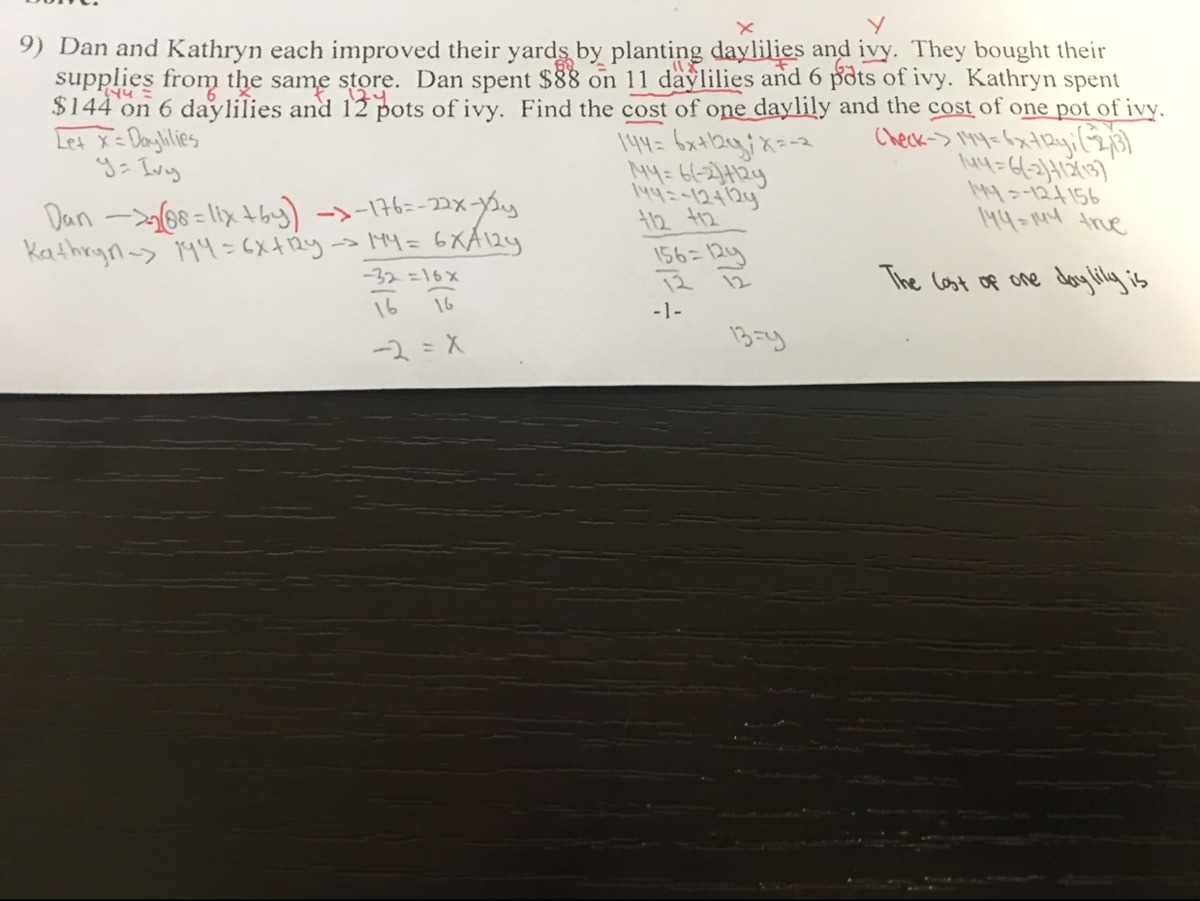 9) Dan and Kathryn each improved their yards by planting daylilies and ivy. They bought their
supplies from the same store. Dan spent $88 on 11 daylilies and 6 pots of ivy. Kathryn spent
$144 on 6 daylilies and 12 pots of ivy. Find the cost of one daylily and the cost of one pot of ivy.
x y
88 = 11x + 6y
144 = 6 x + 12 y
Let x = Daylilies
y = Ivy
Dan -> -2(88 = 11x + 6y) -> -176 = -22x - 12y
Kathryn -> 144 = 6x + 12y -> 144 = 6x + 12y
-32 = 16x
16 16
-2 = x
144 = 6x + 12y ; x = -2
144 = 6(-2) + 12y
144 = -12 + 12y
+12 +12
156 = 12y
12 12
-1-
13 = y
Check -> 144 = 6x + 12y ; (-2, 13)
x y
144 = 6(-2) + 12(13)
144 = -12 + 156
144 = 144 true
The cost of one daylily is